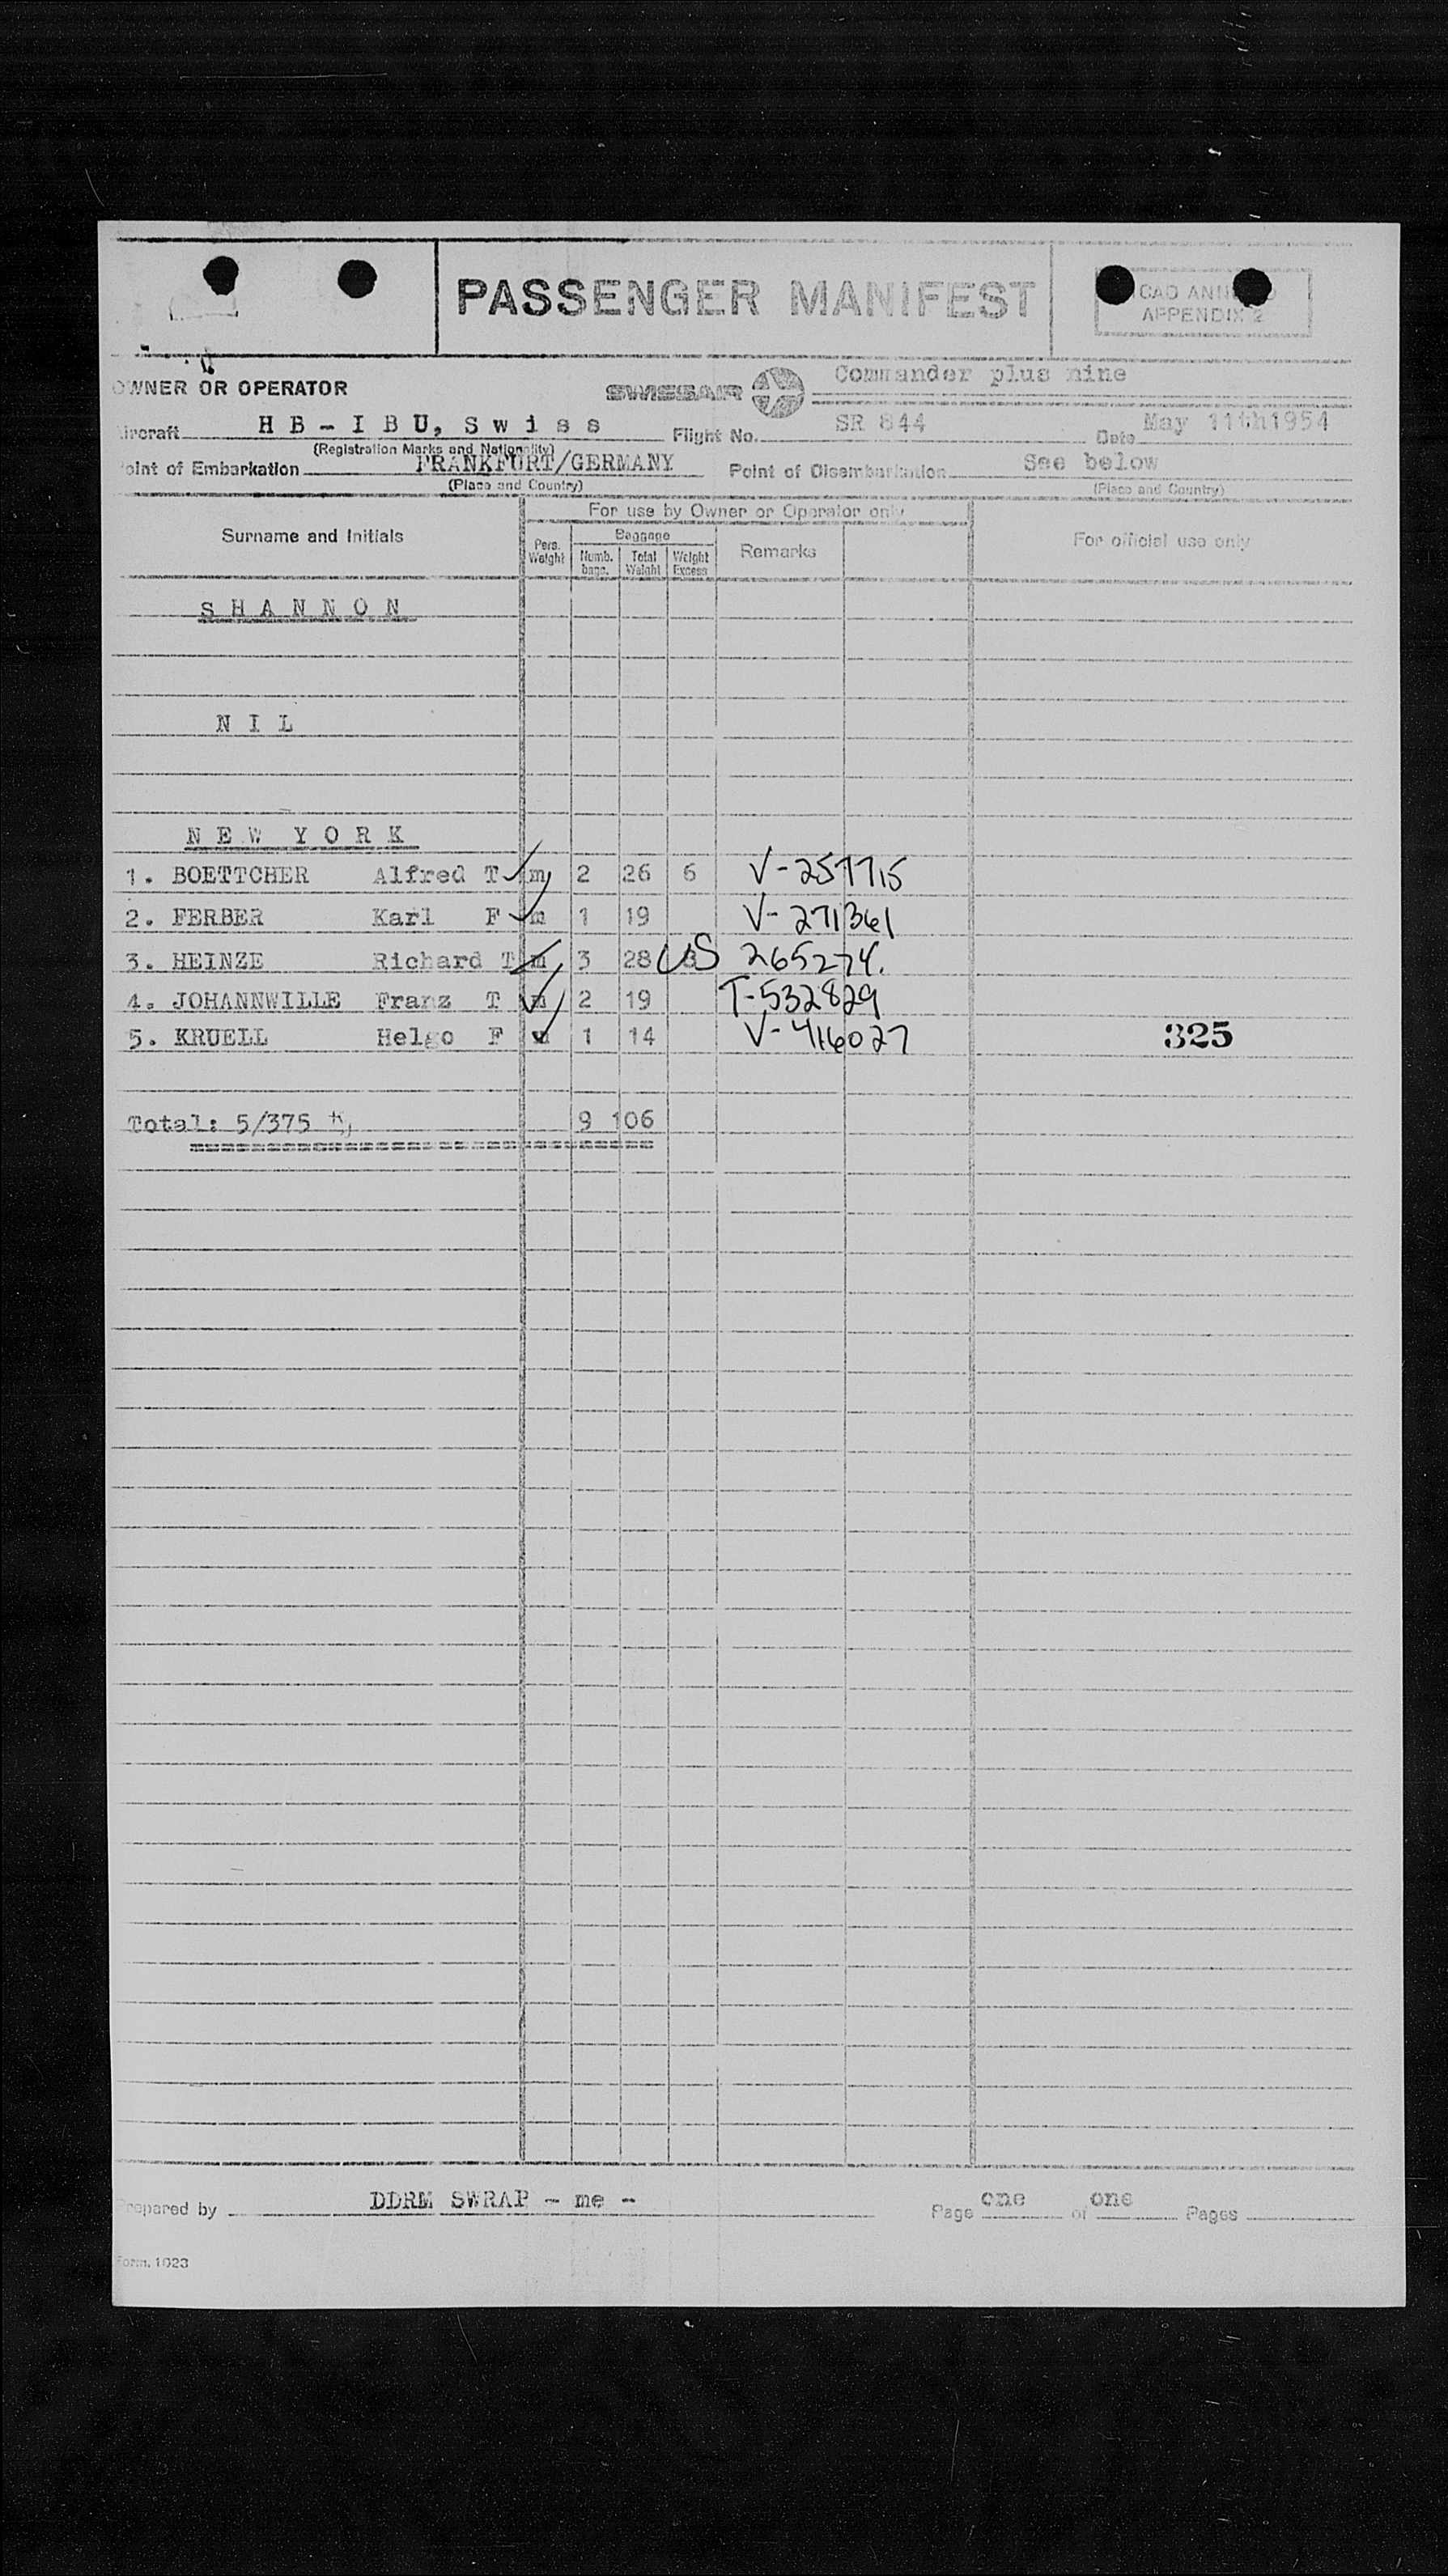 PASSENGER MANIFEST
APPENDIX 2
OWNER OR OPERATOR SWISSAIR Commander plus nine
Aircraft H B - I B U, S w i s s Flight No. SR 844 Date May 11th1954
(Registration Marks and Nationality)
Point of Embarkation FRANKFURT/GERMANY Point of Disembarkation See below
(Place and Country) (Place and Country)
For use by Owner or Operator only
Surname and Initials Pers. Weight Baggage Numb. bags. Total Weight Weight Excess Remarks For official use only
S H A N N O N
N I L
N E W Y O R K
1. BOETTCHER Alfred T m 2 26 6 V-257715
2. FERBER Karl F m 1 19 V-271361
3. HEINZE Richard T m 3 28 8 US 265274.
4. JOHANNWILLE Franz T m 2 19 T-532829
5. KRUELL Helgo F m 1 14 V-416027 325
Total: 5/375 9 106
Prepared by DDRM SWRAP - me - Page one of one Pages
Form. 1023